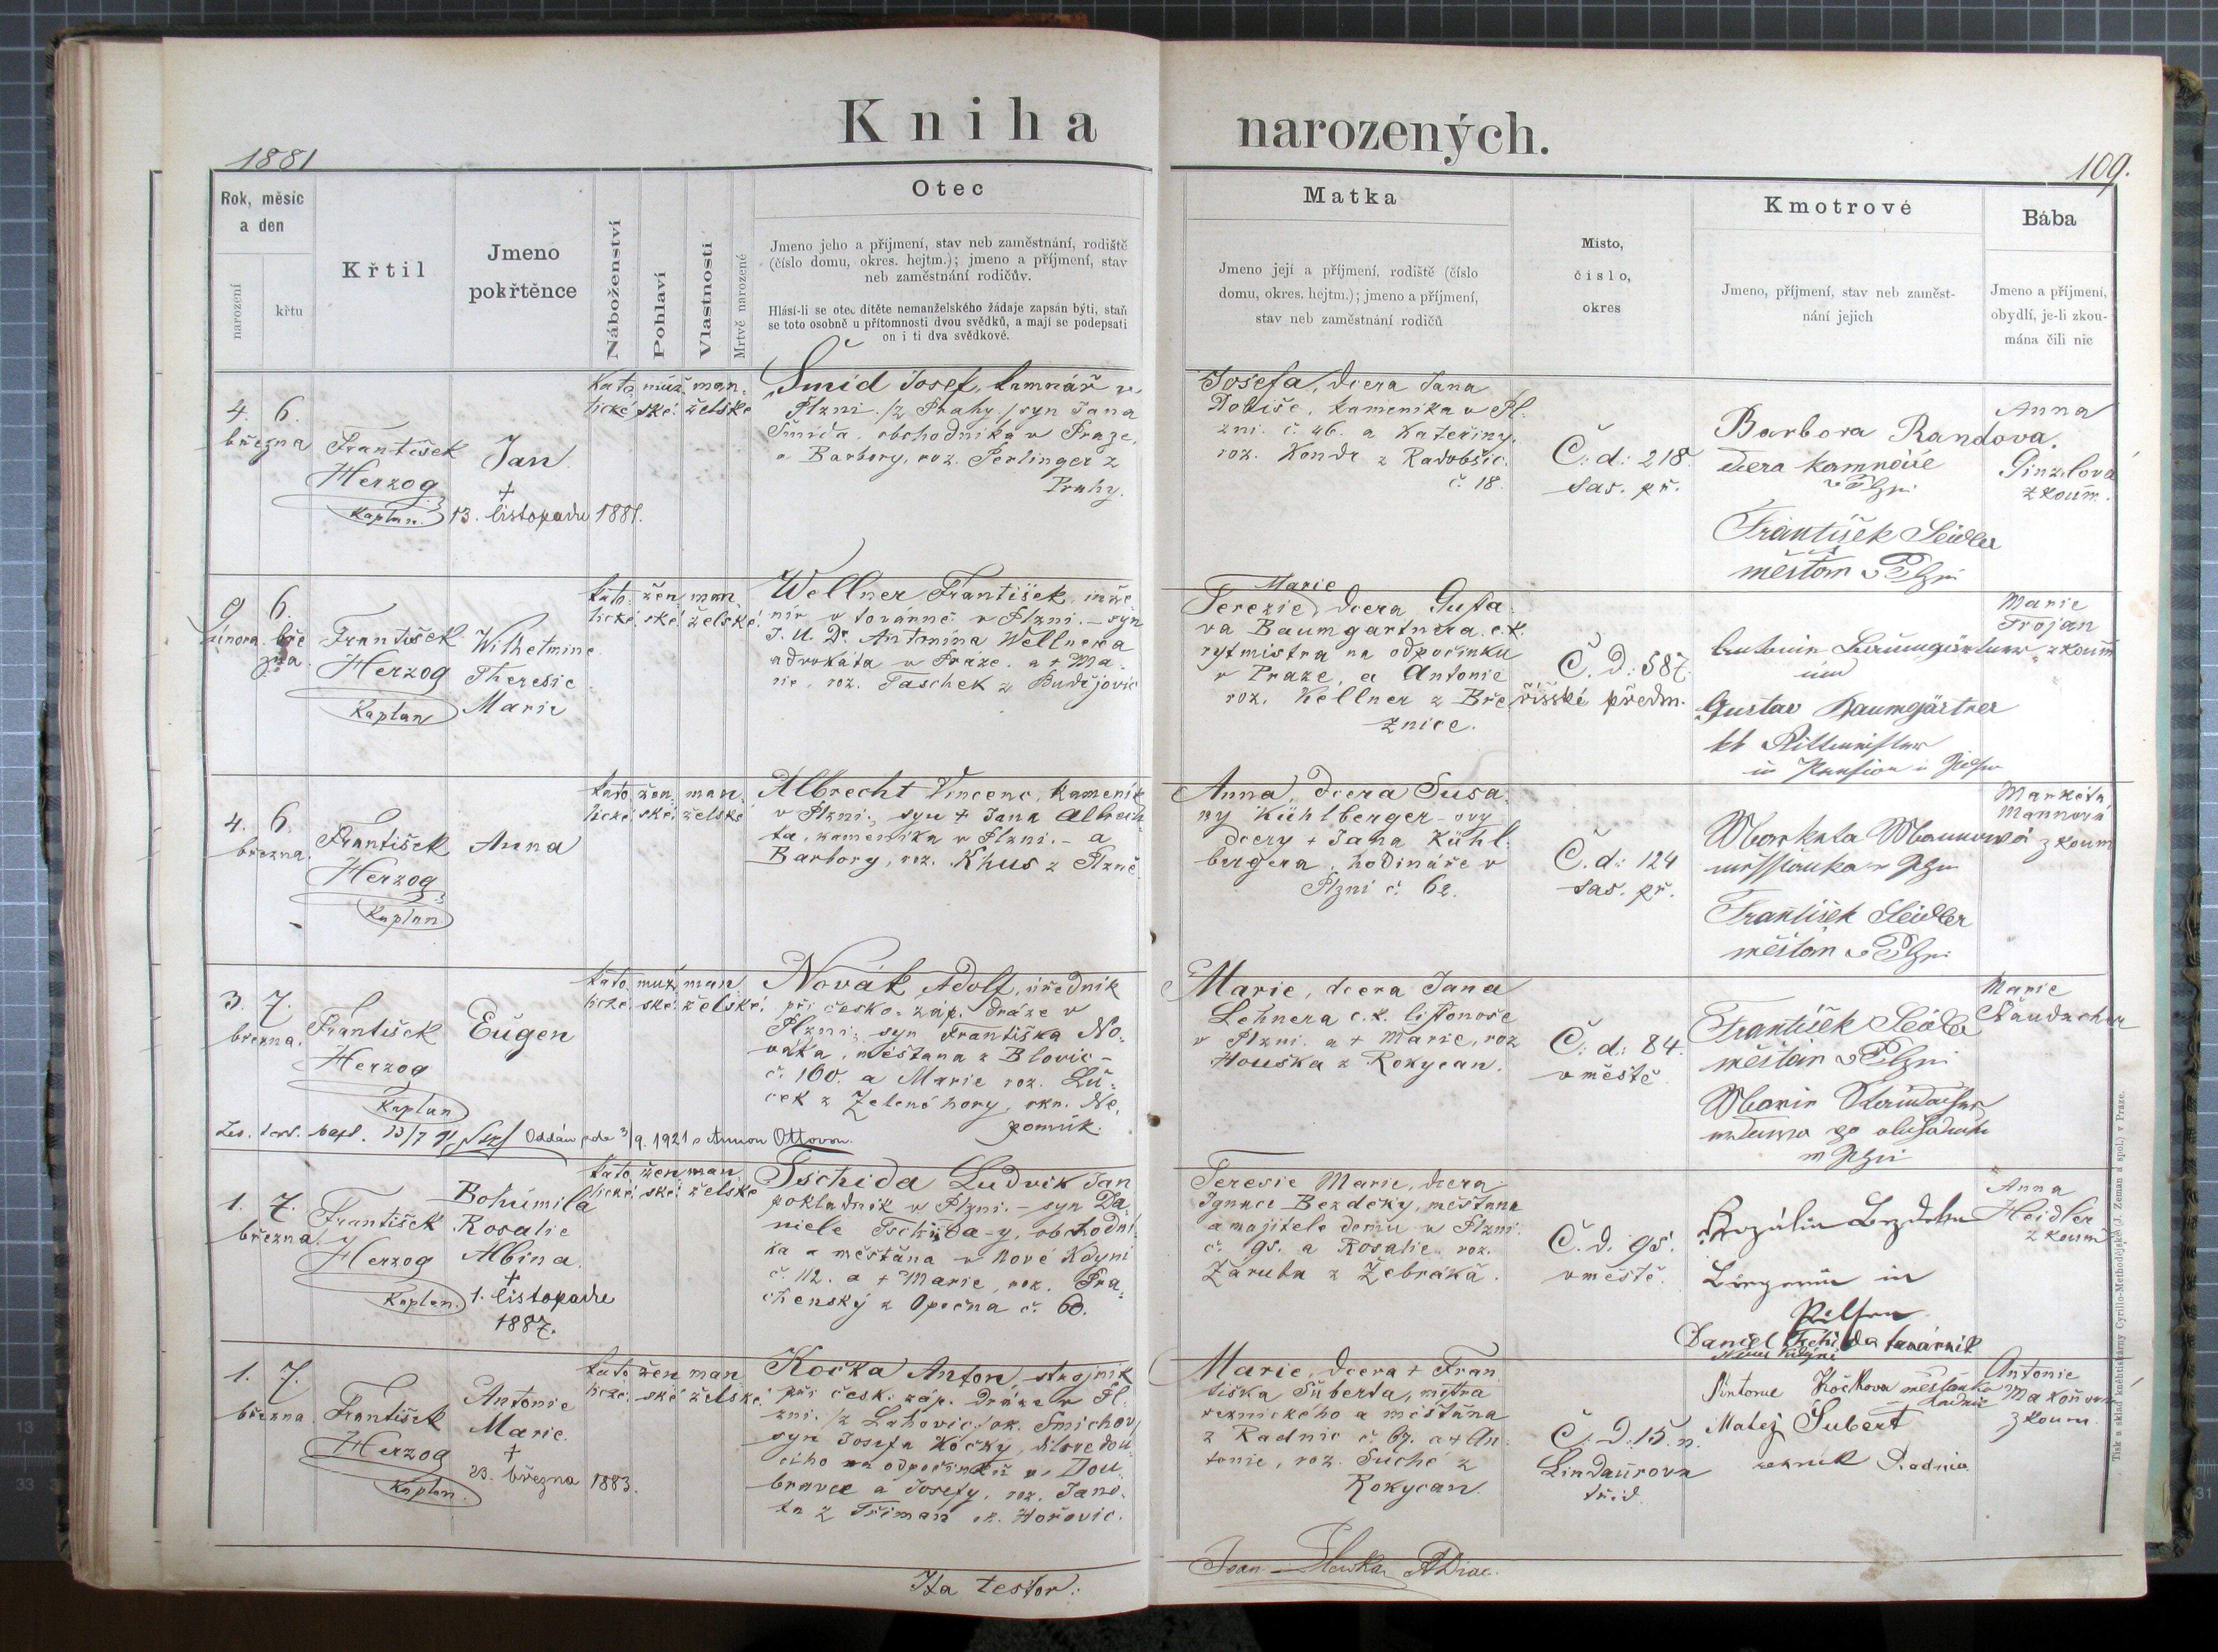 Kniha narozených.
1881
109.
Rok, měsíc
a den
narození
křtu
Křtil
Jmeno
pokřtěnce
Náboženství
Pohlaví
Vlastnosti
Mrtvě narozené
Otec
Jmeno jeho a příjmení, stav neb zaměstnání, rodiště
(číslo domu, okres. hejtm.); jmeno a příjmení, stav
neb zaměstnání rodičův.
Hlásí-li se otec dítěte nemanželského žádaje zapsán býti, staň
se toto osobně u přítomnosti dvou svědků, a mají se podepsati
on i ti dva svědkové.
Matka
Jmeno její a příjmení, rodiště (číslo
domu, okres. hejtm.); jmeno a příjmení,
stav neb zaměstnání rodičů
Místo,
číslo,
okres
Kmotrové
Jmeno, příjmení, stav neb zaměst-
nání jejich
Bába
Jmeno a příjmení,
obydlí, je-li zkou-
mána čili nic
4. 6.
března
František
Herzog
Kaplan.
Jan
†
13. listopadu 1881.
kato muž man
lické ské želské
Šmíd Josef, kamnář v
Plzni. /z Prahy./ syn Jana
Šmída, obchodníka v Praze,
a Barbory, roz. Perlinger z
Prahy.
Josefa, dcera Jana
Dobiše, kameníka v Pl-
zni. č. 46. a Kateřiny,
roz. Kondr z Radobšic.
č. 18.
Č. d: 218.
sas. př.
Barbora Randova.
dcera kamnáře
v Plzni
František Seidler
měšťan v Plzni
Anna
Ginzlová
zkoum.
9 6.
února bře
zna.
František
Herzog
Kaplan
Wilhelmine
Theresie
Marie
kato. žen man
lické ské želské
Wellner František, inže
nír v továrně v Plzni. – syn
J. U. Dr. Antonína Wellnera
advokáta v Praze. a + Ma-
rie, roz. Taschek z Budějovic
Marie
Terezie dcera Gusta-
va Baumgartnera. c.k.
rytmistra na odpočinku
v Praze, a Antonie
roz. Kellner z Bře
znice.
Č. D: 587.
říšské předm.
Gustav Baumgärtner
kk Rittmeister
in Pension in Pilsen
Marie
Trojan
zkoum
4. 6.
března.
František
Herzog
Kaplan
Anna
kato žen man
lické ské želské
Albrecht Vincenc, kameník
v Plzni., syn + Jana Albrech
ta, kameníka v Plzni. – a
Barbory, roz. Khus z Plzně.
Anna, dcera Susa-
ny Kühlberger-ovy
dcery + Jana Kühl-
bergera, hodináře v
Plzni č. 62.
Č. d: 124
sas. př.
František Seidler
měšťan v Plzni
Markéta
Mannová
zkoum
3. 7.
března.
František
Herzog
Kaplan
Eugen
kato muž man
lické ské želské
Novák Adolf, úředník
při česko-záp. dráze v
Plzni; syn Františka No-
váka, měšťana z Blovic –
č. 100. a Marie roz. Lu-
cek z Zelené hory, okr. Ne-
pomuk.
Oddán dne 3/9. 1921 s Annou Ottovou.
Marie, dcera Jana
Lehnera c.k. listonoše
v Plzni. a + Marie, roz
Houška z Rokycan.
Č. d: 84.
v městě
František Seidler
měšťan v Plzni
Marie
1. 7.
března.
František
Herzog
Kaplan.
Bohumila
Rosalie
Albina.
†
1. listopadu
1887.
kato žen man
lické ské želské
Tschida Ludvík Jan
pokladník v Plzni. – syn Da-
niele Tschida-y, obchodní-
ka a měšťana v Nové Kdyni
č. 112. a + Marie, roz. Pra-
chenský z Opočna č. 60.
Teresie Marie, dcera
Ignace Bezděky, měšťana
a majitele domu v Plzni
č. 95. a Rosalie, roz.
Záruba z Žebráka.
Č. d. 95.
v městě.
Bürgerin in
Pilsen
Daniel Tschida továrník
Anna
Heidler
zkoum
1. 7.
března.
František
Herzog
Kaplan.
Antonie
Marie.
†
23. března 1883.
kato žen man
lické ské želské
Kočka Anton, strojník
při česk. záp. dráze v Pl-
zni. /z Lahovic, ok. Smíchov/
syn Josefa Kočky, dílovedou-
cího na odpočinku v Dou-
bravce a Josefy, roz. Jano-
ta z Tříman ok. Hořovic.
Marie, dcera + Fran
tiška Šuberta, mistra
řeznického a měšťana
z Radnic č. 67. a + An-
tonie, roz. Suché z
Rokycan.
Č. D. 15. n.
Lindaurova
tříd.
Antonie Kočkova měšťanka
Matěj Šubert
řezník Radnice
Antonie
Makoňova
zkoum.
Ita testor:
Tisk a sklad knihtiskárny Cyrillo-Methodějské (J. Zeman a spol.) v Praze.